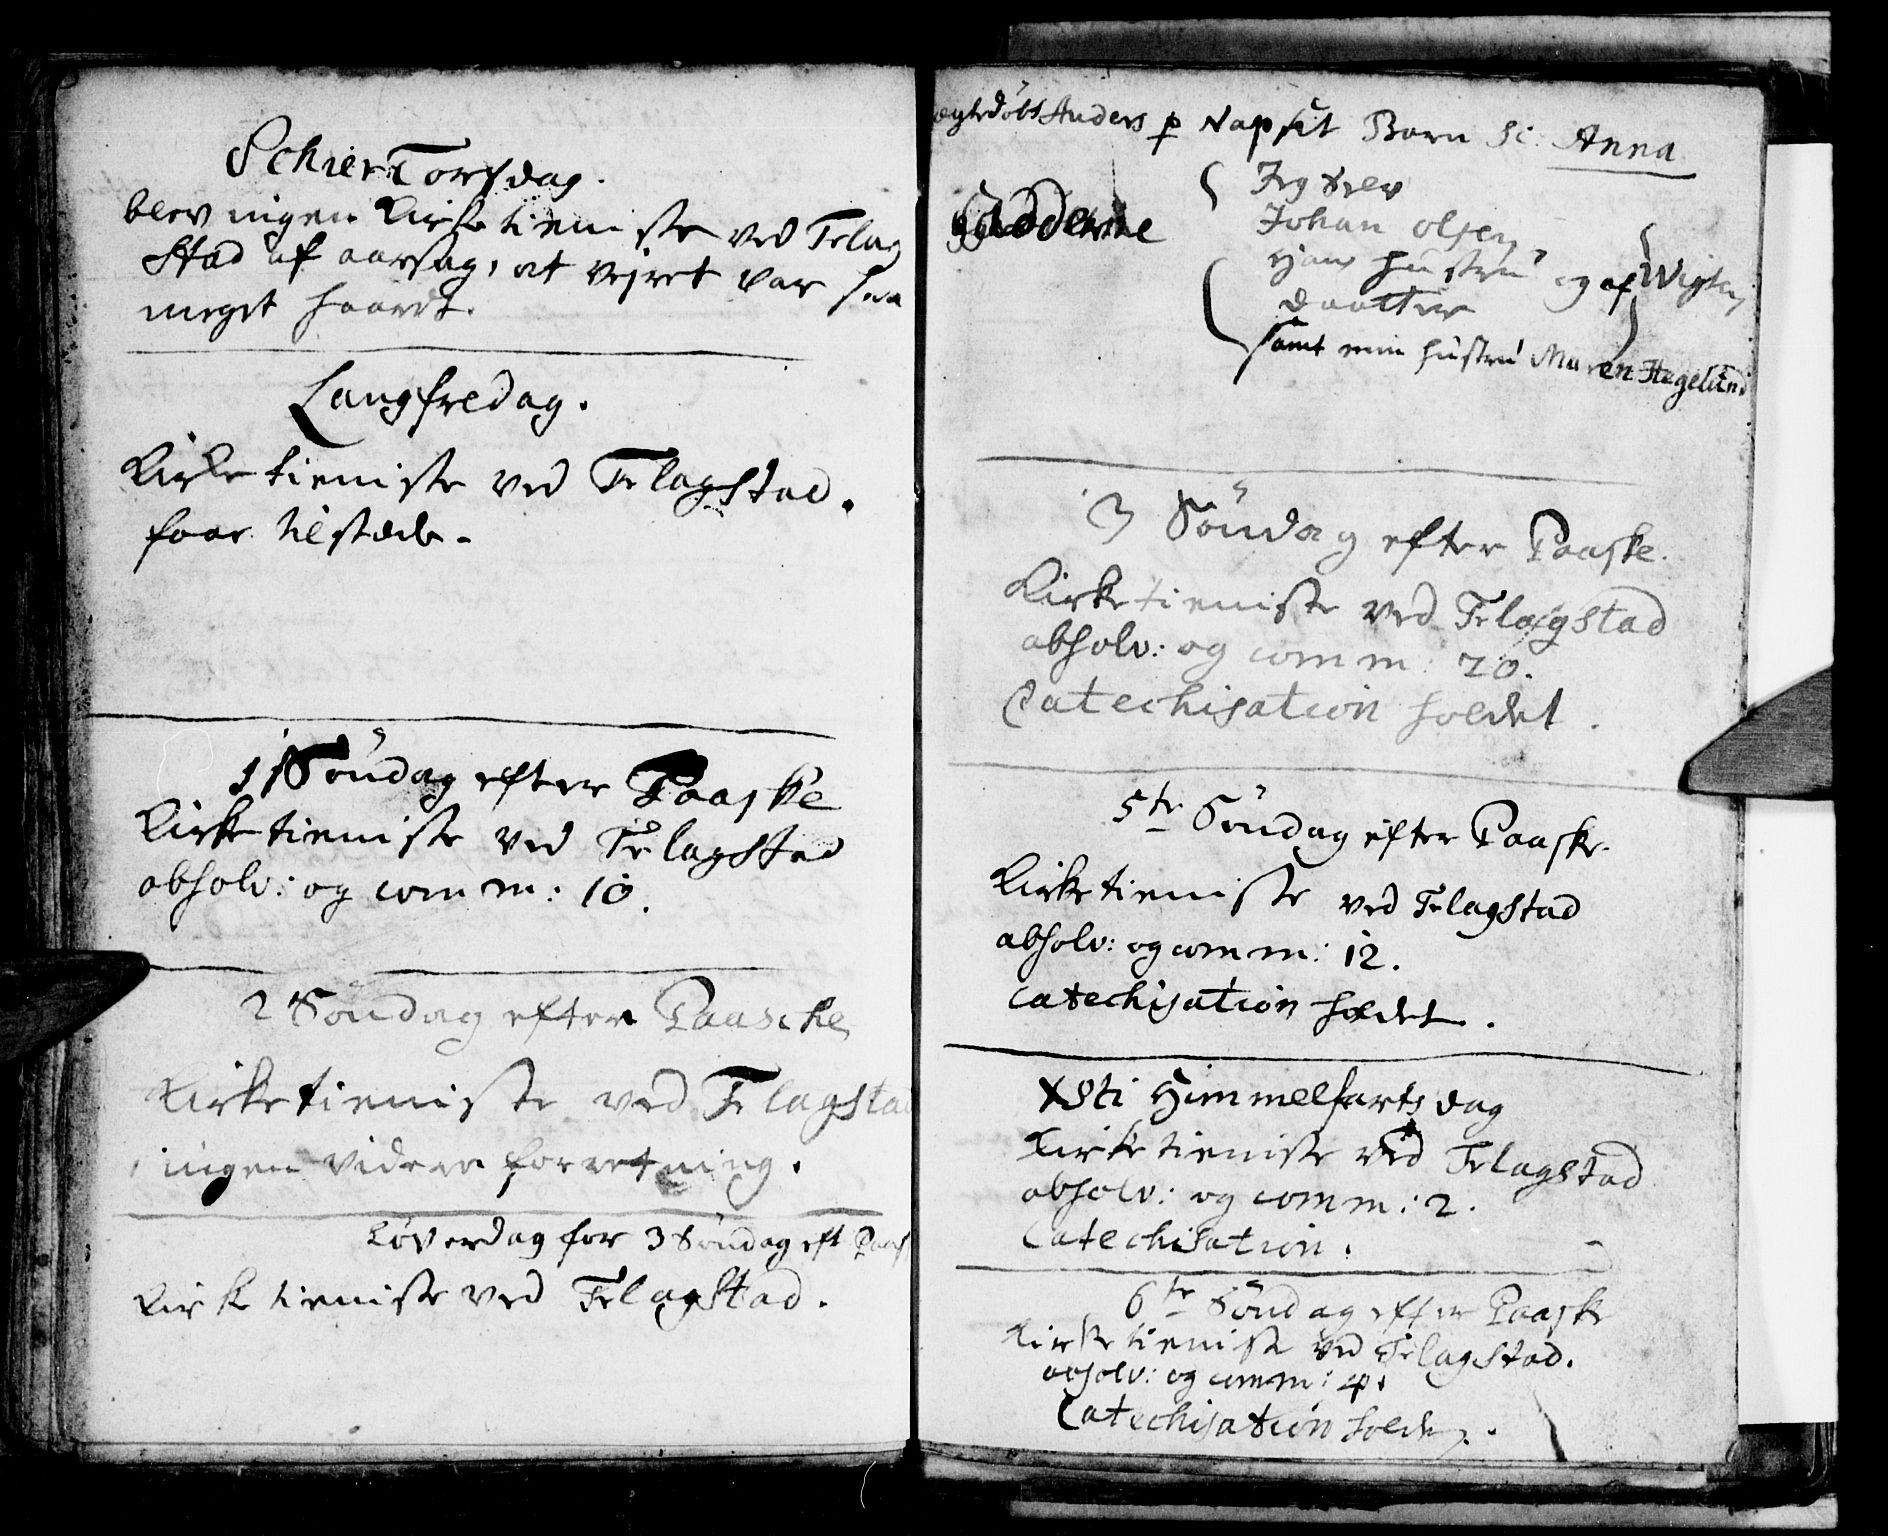 Schier Torsdag.
blev ingen Kirke tieniste ved Felag
stad af aarsag, at vejret var saa
meget haardt.
Langfredag.
Kirke tieniste ved Felagstad.
faar tilstede.
1 Söndag efter Paaske
Kirke tieniste ved Felagstad
absolv: og comm: 10.
2 Söndag efter Paasche
Kirke tieniste ved Felagstad
ingen videre forretning.
Löverdag for 3 Söndag eft Paas
Kirke tieniste ved Felagstad.
Anders p Napset Barn sc: Anna
Fadderne
Jeg selv
Johan Olsen
Hans hustru og af Wigten
daatter
samt min hustru Maren Hegelund
3 Söndag efter Paaske.
Kirke tieniste ved Felagstad
absolv: og comm: 20.
Catechisation holdet.
5te Söndag efter Paaske.
Kirke tieniste ved Felagstad
absolv: og comm: 12.
Catechisation holdet.
Xsti Himmelfarts dag
Kirke tieniste ved Felagstad
absolv: og comm: 2.
Catechisation.
6te Söndag efter Paaske
Kirke tieniste ved Felagstad.
absolv: og comm: 4.
Catechisation holden.